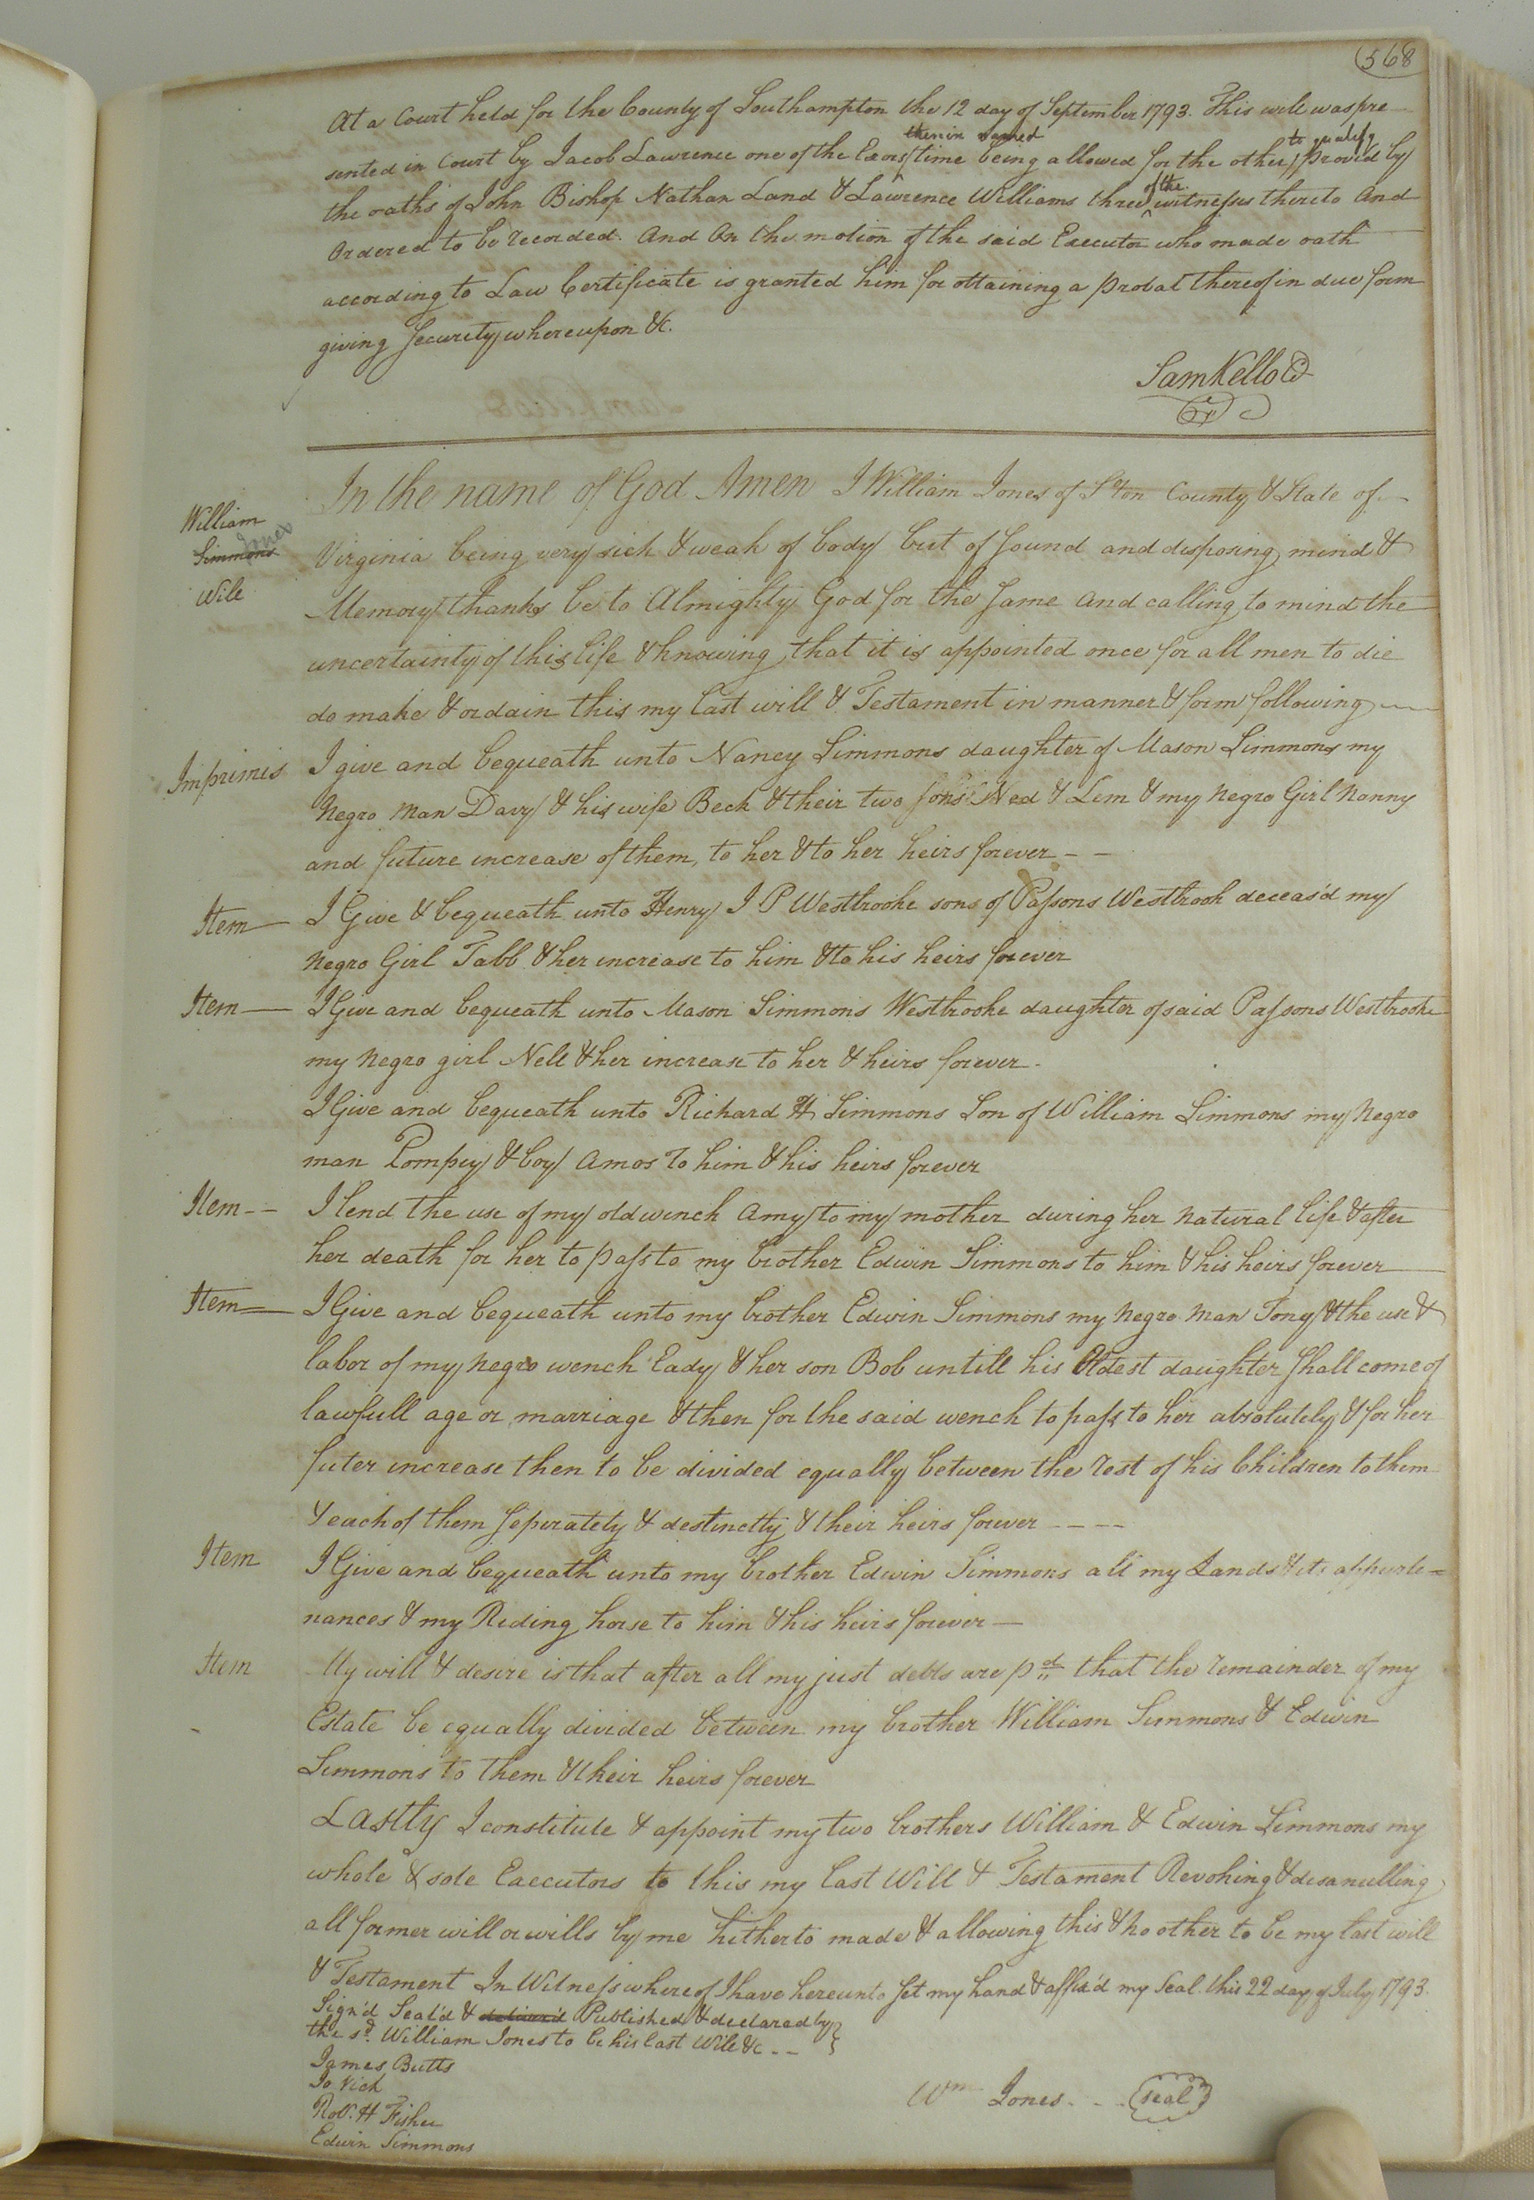 568
At a Court held for the County of Southampton the 12 day of September 1793. This will was pre
sented in Court by Jacob Lawrence one of the Exors therein named time being allowed for the other to qualify proved by
the oaths of John Bishop Nathan Land & Lawrence Williams three of the witnesses thereto And
Ordered to be recorded. And On the motion of the said Executor who made oath
according to Law Certificate is granted him for obtaining a probat thereof in due form
giving Security whereupon &c.
Sam Kello C
William
Simmons
Jones
Will
In the name of God Amen I William Jones of S°ton County & State of
Virginia being very sick & weak of body but of Sound and disposing mind &
Memory thanks be to Almighty God for the Same and calling to mind the
uncertainty of this life & knowing that it is appointed once for all men to die
do make & ordain this my last will & Testament in manner & form following
Imprimis I give and bequeath unto Nancy Simmons daughter of Mason Simmons my
Negro Man Davy & his wife Beck & their two sons Ned & Lem & my Negro Girl Nanny
and future increase of them, to her & to her heirs forever - -
Item I Give & bequeath unto Henry J P Westbrooke sons of Passons Westbrook deceas'd my
Negro Girl Tabb & her increase to him & to his heirs forever
Item I Give and bequeath unto Mason Simmons Westbrooke daughter of said Passons Westbrooke
my Negro girl Nell & her increase to her & heirs forever.
I Give and bequeath unto Richard H Simmons Son of William Simmons my Negro
man Pompey & boy Amos To him & his heirs forever
Item -- I lend the use of my old wench Amy to my mother during her Natural life & after
her death for her to pass to my brother Edwin Simmons to him & his heirs forever
Item I Give and bequeath unto my brother Edwin Simmons my Negro Man Tony & the use &
labor of my negro wench Eady & her son Bob untill his Oldest daughter Shall come of
lawfull age or marriage & then for the said wench to pass to her absolutely & for her
futer increase then to be divided equally between the rest of his Children to them
& each of them Seperately & destinctly & their heirs forever ----
Item I Give and bequeath unto my brother Edwin Simmons all my Lands & its appurte=
nances & my Riding horse to him & his heirs forever
Item My will & desire is that after all my just debts are pd that the remainder of my
Estate be equally divided between my brother William Simmons & Edwin
Simmons to them & their heirs forever
Lastly I constitute & appoint my two brothers William & Edwin Simmons my
whole & sole Executors to this my last Will & Testament Revoking & disanulling
all former will or wills by me hitherto made & allowing this & no other to be my last will
& Testament In Witness whereof I have hereunto Set my hand & affix'd my Seal this 22 day of July 1793.
Sign'd Seal'd & deliver'd Published & declared by
the sd. William Jones to be his last Will &c --
James Butts
Jo Vick
Wm Jones... seal
Robt. H Fisher
Edwin Simmons